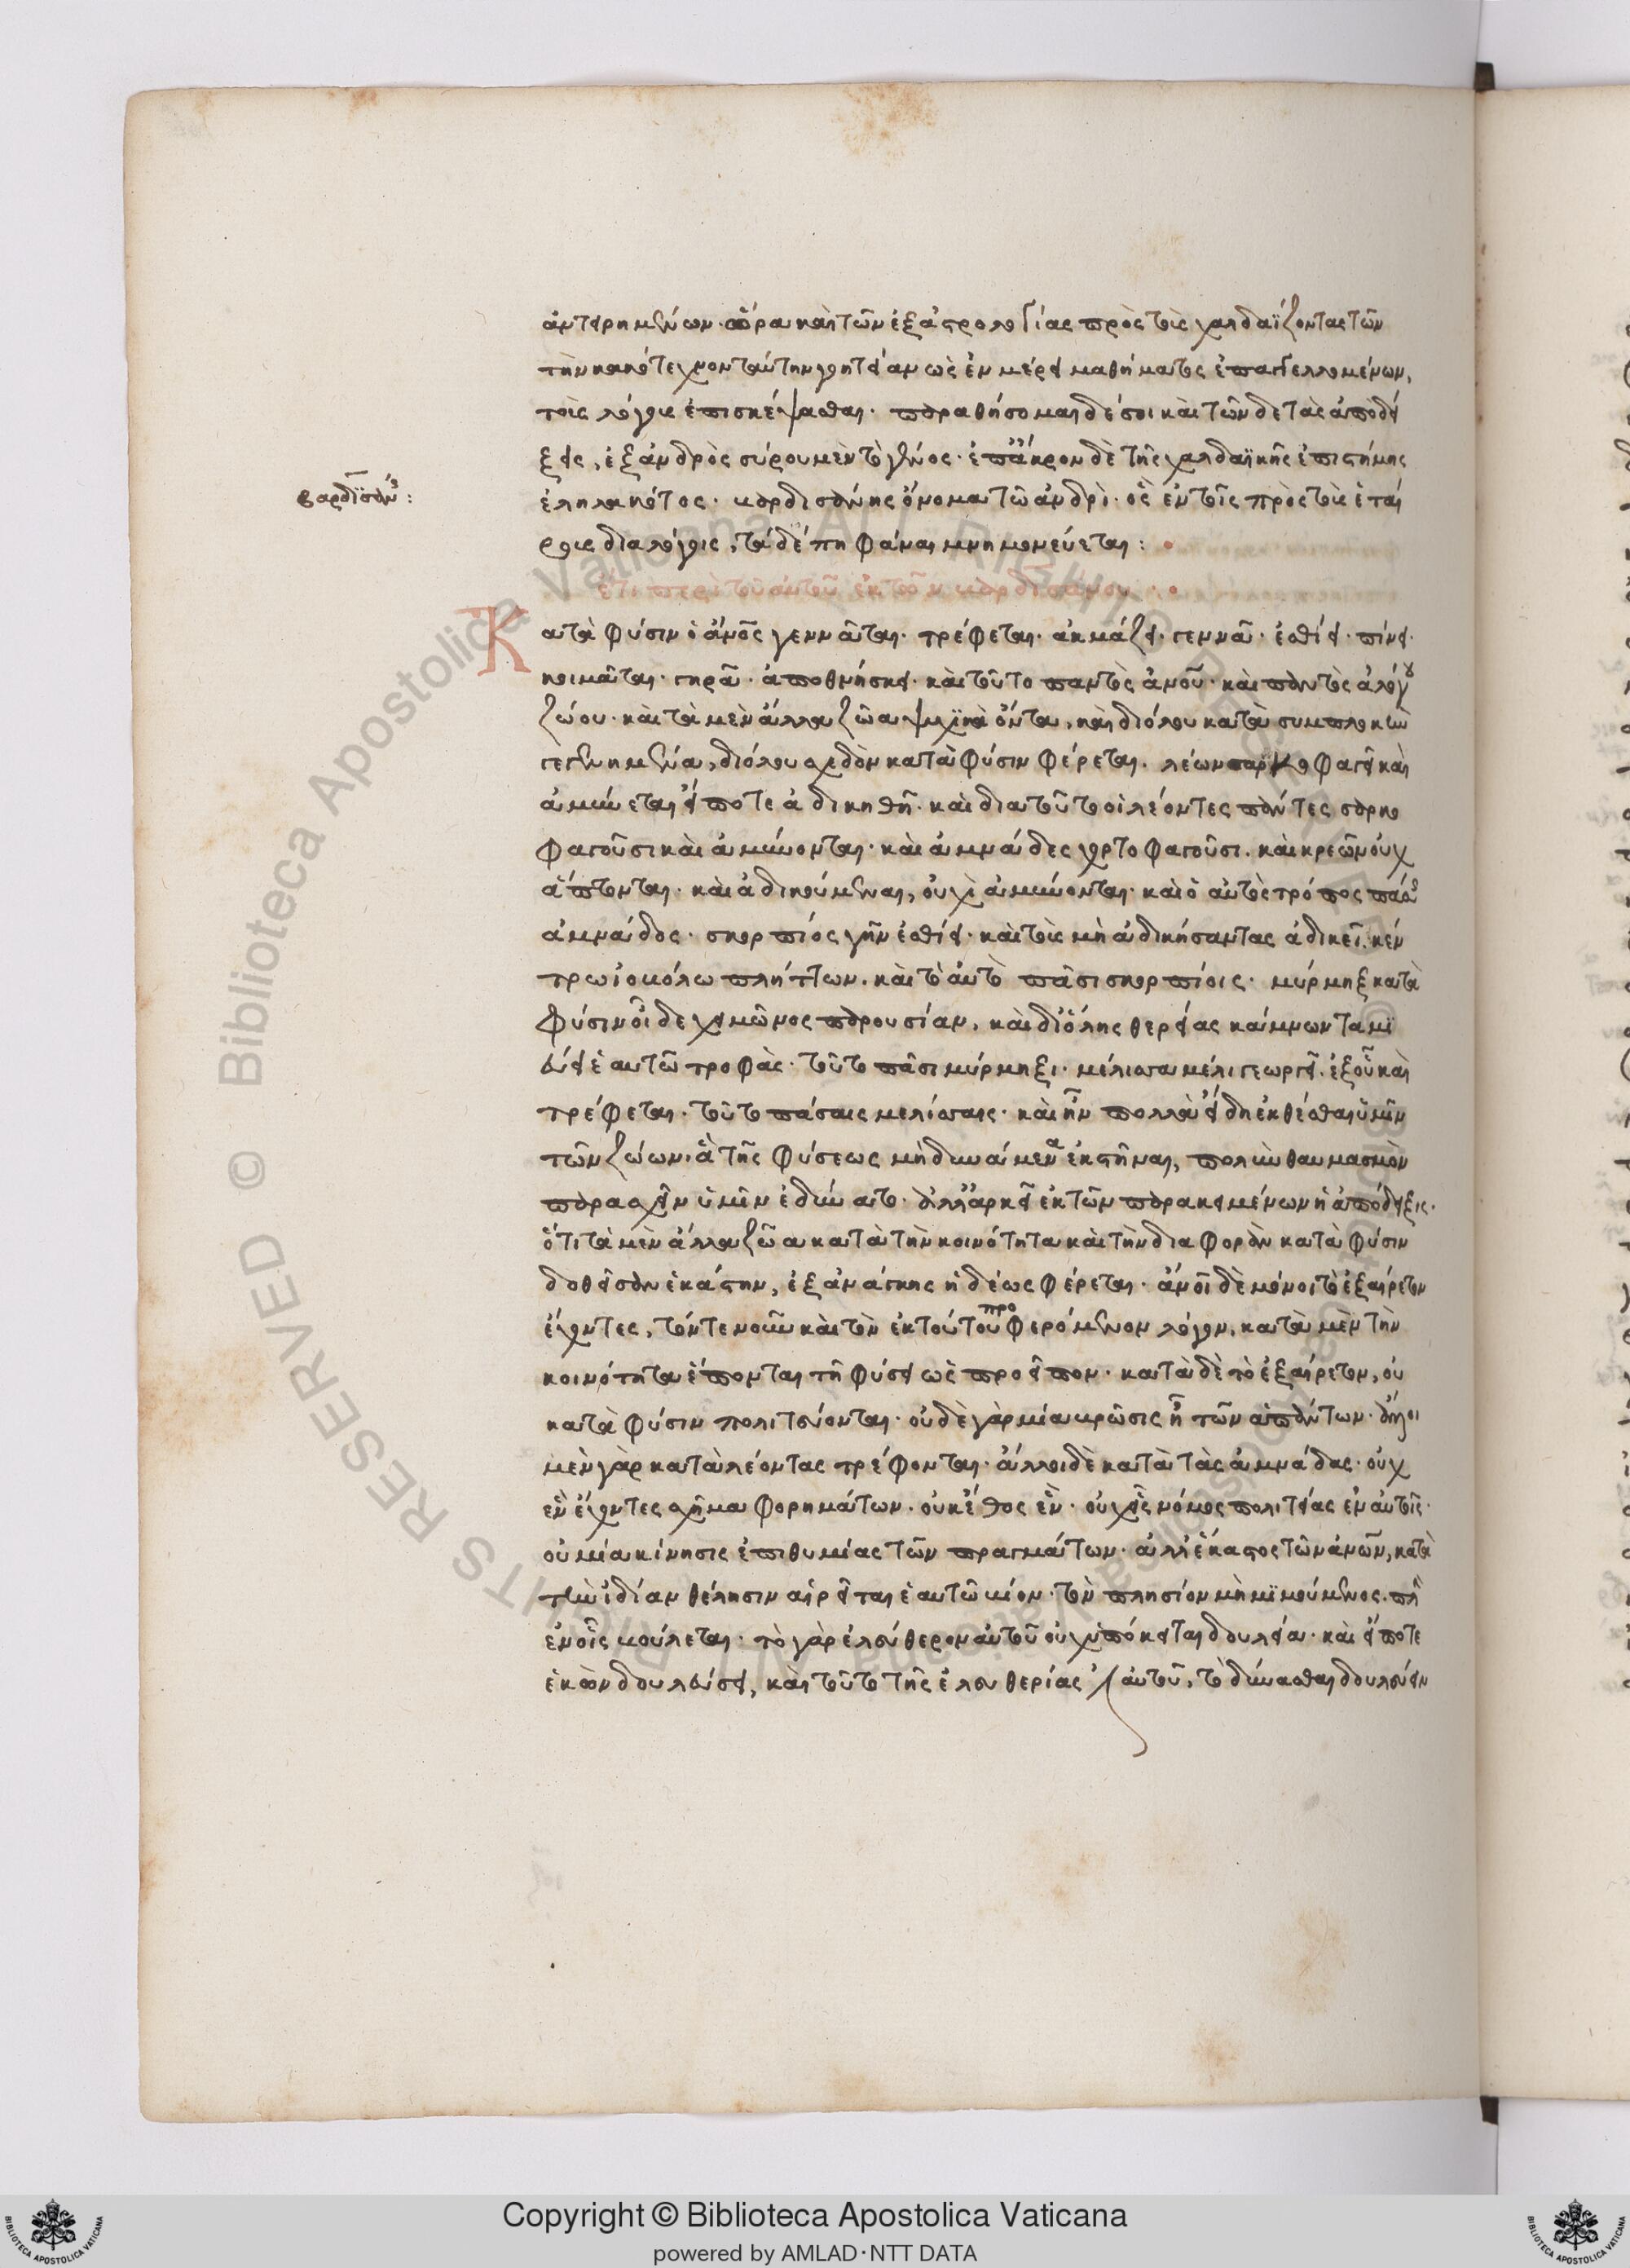 ἀντειρημένων· ὥρα καὶ τῶν ἐξ ἀστρολογίας πρὸς τοὺς χαλδαΐζοντας τῶν
τὴν κακότεχνον ταύτην γοητείαν ὡς ἐν μέρει μαθήματος ἐπαγγελλομένων,
τοῖς λόγοις ἐπισκέψασθαι· παραθήσομαι δέ σοι καὶ τῶνδε τὰς ἀποδεί
ξεις, ἐξ ἀνδρὸς σύρου μὲν τὸ γένος· ἐπ' ἄκρον δὲ τῆς χαλδαϊκῆς ἐπιστήμης
βαρδισάν:
ἐληλακότος· βαρδισάνης ὄνομα τῶ ἀνδρὶ· ὃς ἐν τοῖς πρὸς τοὺς ἑταί
ρους διαλόγοις, τάδέ πη φάναι μνημονεύεται:
ἔτι περὶ τοῦ αὐτοῦ ἐκ τῶν βαρδισάνου
Κατὰ φύσιν ὁ ἄνος γεννᾶται· τρέφεται· ἀκμάζει· γεννᾶ· ἐσθίει· πίνει·
κοιμᾶται· γηρᾶ· ἀποθνήσκει· καὶ τοῦτο παντὸς ἀνου· καὶ παντὸς ἀλόγου
ζώου· καὶ τὰ μὲν ἄλλα ζῶα ψυχϊκὰ ὄντα, καὶ διόλου κατὰ συμπλοκὴν
γεγενημένα, διόλου σχεδὸν κατὰ φύσιν φέρεται. λέων σαρκοφαγεῖ καὶ
ἀμύνεται εἴ ποτε ἀδικηθῆ· καὶ δια τοῦτο οἱ λέοντες πάντες σαρκο
φαγοῦσι καὶ ἀμύνονται· καὶ ἀμνάδες χορτοφαγοῦσι. καὶ κρεῶν οὐχ
ἅπτονται· καὶ ἀδικούμεναι, οὐχὶ ἀμύνονται· καὶ ὁ αὐτὸς τρόπος πάσ
ἀμνάδος· σκορπίος γῆν ἐσθίει· καὶ τοὺς μὴ ἀδικήσαντας ἀδικεῖ. κέν
τρω ἰοβόλω πλήττων. καὶ τὸ αὐτὸ πᾶσι σκορπίοις· μύρμηξ κατὰ
φύσιν οἶδε χειμῶνος παρουσίαν, καὶ δι' ὅλης θερείας κάμνων ταμϊ
εύει ἑαυτῶ τροφὰς· τοῦτο πᾶσι μύρμηξι· μέλισσα μέλι γεωργεῖ. ἐξ οὗ καὶ
τρέφεται· τοῦτο πάσαις μελίσσαις· καὶ ἦν πολλὰ εἴδη ἐκθέσθαι ὑμῖν
τῶν ζώων· ἃ τῆς φύσεως μὴ δυνάμενα ἐκστῆναι, πολὺν θαυμασμὸν
παρασχεῖν ὑμῖν ἐδύνατο· ἀλλ' ἀρκεῖ ἐκ τῶν παρακειμένων ἡ ἀπόδειξις·
ὅτι τὰ μὲν ἄλλα ζῶα κατὰ τὴν κοινότητα καὶ τὴν διαφορὰν κατὰ φύσιν
δοθεῖσαν ἑκάστην, ἐξ ἀνάγκης ἡδέως φέρεται· ἄνοι δὲ μόνοι τὸ ἐξαίρετον
ἔχοντες, τόν τε νοῦν καὶ τὸν ἐκ τούτου προφερόμενον λόγον, κατὰ μὲν τὴν
κοινότητα ἕπονται τῆ φύσει ὡς προεῖπον· κατὰ δὲ τὸ ἐξαίρετον, οὐ
κατὰ φύσιν πολιτεύονται· οὐδὲ γὰρ μία βρῶσις ἦ τῶν ἁπάντων· ἄλλοι
μὲν γὰρ κατὰ λέοντας τρέφονται· ἄλλοι δὲ κατὰ τὰς ἀμνάδας· οὐχ
ἓν ἔχοντες σχῆμα φορημάτων· οὐκ ἔθος ἓν· οὐχ εἷς νόμος πολιτείας ἐν αὐτοῖς·
οὐ μία κίνησις ἐπιθυμίας τῶν πραγμάτων· ἀλλ' ἕκαστος τῶν ἀνων, κατὰ
τὴν ἰδίαν θέλησιν αἱρεῖται ἑαυτῶ βίον· τὸν πλησίον μὴ μϊμούμενος. πλ
ἐν οἷς βούλεται· τὸ γὰρ ἐλεύθερον αὐτοῦ οὐχ ὑπόκειται δουλεία· καὶ εἴ ποτε
ἑκὼν δουλεύσει, καὶ τοῦτο τῆς ἐλευθερίας αὐτοῦ, τὸ δύνασθαι δουλεύειν
Copyright © Biblioteca Apostolica Vaticana
powered by AMLAD·NTT DATA